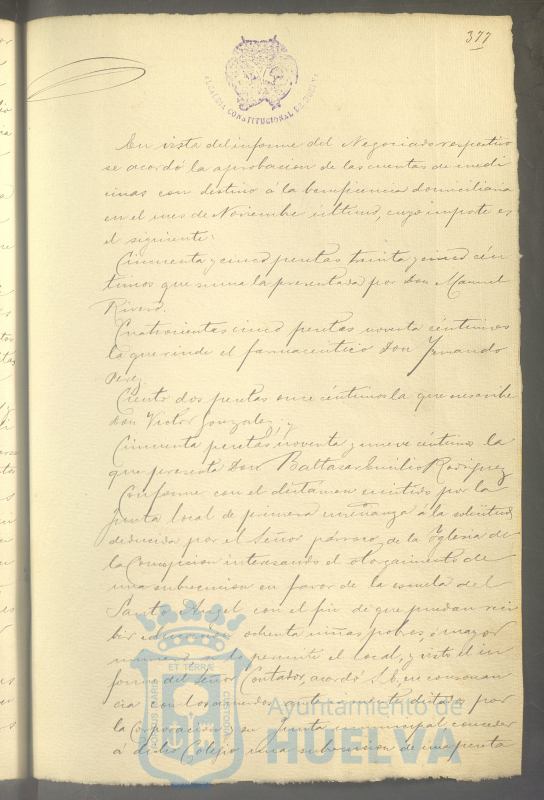 377
ALCALDIA CONSTITUCIONAL DE HUELVA
En vista del informe del Negociado respectivo
se acordó la aprobacion de las cuentas de medi
cinas con destino á la beneficencia domiciliaria
en el mes de Noviembre último, cuyo importe es
el siguiente:
Cincuenta y cinco pesetas treinta y cinco cén
timos que suma la presentada por Don Manuel
Rivero.
Cuatrocientas cinco pesetas noventa céntimos
la que rinde el farmacéutico Don Fernando
Perez
Ciento dos pesetas once céntimos la que suscribe
Don Victor Gonzalez; y
Cincuenta pesetas noventa y nueve céntimos la
que presenta Don Baltasar Emilio Rodriguez
Conforme con el dictámen emitido por la
Junta local de primera enseñanza á la solicitud
deducida por el Señor párroco de la Iglesia de
la Concepcion interesando el otorgamiento de
una subvencion en favor de la escuela del
Santo Angel con el fin de que puedan reci
bir educacion ochenta niñas pobres ó mayor
número si lo permite el local, y visto el in
forme del Señor Contador, acordó S.E., en consonan
cia con los acuerdos por
la Corporacion y su Junta municipal conceder
á dicho Colegio una subvencion de una peseta
PORTUS MARIS ET TERRÆ CUSTODIA
Ayuntamiento de
HUELVA